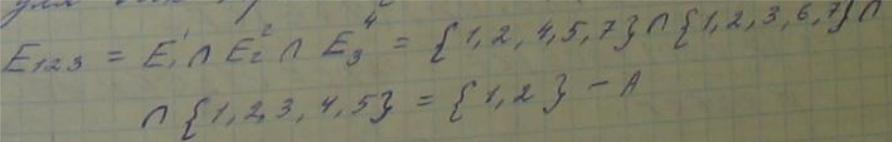 для
E₁₂₃ = E₁¹ ∩ E₂² ∩ E₃⁴ = {1,2,4,5,7} ∩ {1,2,3,6,7} ∩
∩ {1,2,3,4,5} = {1,2} – A